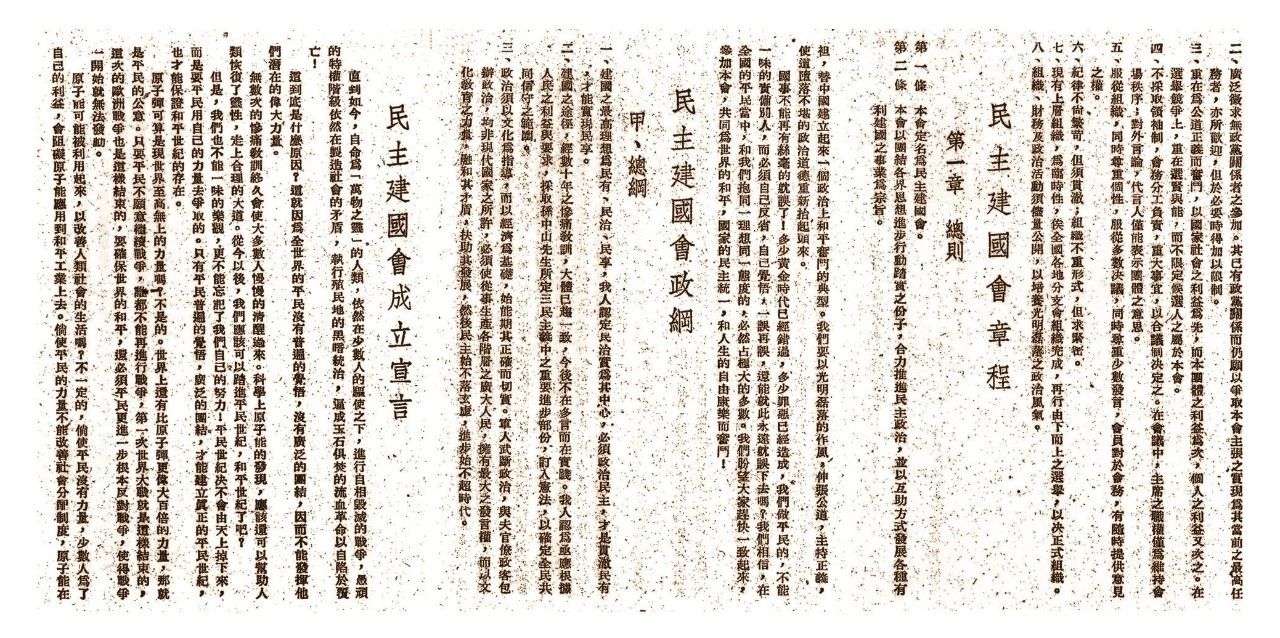 二、廣泛徵求無政黨關係者之參加。其已有政黨關係而仍願以爭取本會主張之實現爲其當前之最高任
務者，亦所歡迎，但於必要時得加以限制。
三、重在爲公道正義而奮鬥，以國家社會之利益爲先，而本團體之利益爲次，個人之利益又次之。在
選舉競爭上，重在選賢與能，而不限定候選人之屬於本會。
四、不採取領袖制，會務分工負責，重大事宜，以合議制決定之。在會議中，主席之職權僅爲維持會
場秩序；對外言論，代言人僅能表示團體之意思。
五、服從組織，同時尊重個性，服從多數決議，同時尊重少數發言，會員對於會務，有隨時提供意見
之權。
六、紀律不尙繁苛，但須貫澈；組織不重形式，但求緊密。
七、現有上層組織，爲臨時性，俟全國各地分支會組織完成，再行由下而上之選舉，以決正式組織。
八、組織、財務及政治活動須儘量公開，以培養光明磊落之政治風氣。
民主建國會章程
第一章　總則
第一條　本會定名爲民主建國會。
第二條　本會以團結各界思想進步行動踏實之份子，合力推進民主政治，並以互助方式發展各種有
利建國之事業爲宗旨。
袒，替中國建立起來一個政治上和平奮鬥的典型。我們要以光明磊落的作風，伸張公道，主持正義，
使這墮落不堪的政治道德重新抬起頭來。
國事不能再有絲毫的躭誤了！多少黃金時代已經錯過，多少罪惡已經造成，我們做平民的，不能
一味的責備別人，而必須自己反省，自己覺悟，一誤再誤，還能就此永遠躭誤下去嗎？我們相信，在
全國的平民當中，和我們抱同一理想同一態度的，必然占極大的多數。我們盼望大家趕快一致起來，
參加本會，共同爲世界的和平，國家的民主統一，和人生的自由康樂而奮鬥！
民主建國會政綱
甲、總綱
一、建國之最高理想爲民有、民治、民享，我人認定民治實爲其中心，必須政治民主，才是貫澈民有
，才能實現民享。
二、建國之途徑，經數十年之慘痛敎訓，大體已趨一致，今後不在多言而在實踐。我人認爲亟應根據
人民之利益與要求，採取孫中山先生所定三民主義中之重要進步部份，訂入憲法，以確定全民共
同信守之範圍。
三、政治須以文化爲指導，而以經濟爲基礎，始能期其正確而切實。軍人武斷政治，與夫官僚政客包
辦政治，均非現代國家之所許，必須使從事生產各階層之廣大人民，擁有最大之發言權，而以文
化敎育之力量，融和其矛盾，扶助其發展，然後民主始不落玄虛，進步始不超時代。
民主建國會成立宣言
直到如今，自命爲「萬物之靈」的人類，依然在少數人的驅使之下，進行自相毀滅的戰爭，愚頑
的特權階級依然在製造社會的矛盾，執行殖民地的黑暗統治，逼成玉石俱焚的流血革命以自陷於覆
亡！
這到底是什麼原因？這就因爲全世界的平民沒有普遍的覺悟，沒有廣泛的團結，因而不能發揮他
們潛在的偉大力量。
無數次的慘痛敎訓終久會使大多數人慢慢的清醒過來。科學上原子能的發現，應該還可以幫助人
類恢復了靈性，走上合理的大道。從今以後，我們應該可以踏進平民世紀，和平世紀了吧？
但是，我們也不能一味的樂觀，更不能忘記了我們自己的努力！平民世紀決不會由天上掉下來，
而是要平民用自己的力量去爭取的。只有平民普遍的覺悟，廣泛的團結，才能建立眞正的平民世紀，
也才能保證和平世紀的存在。
原子彈可算是現世界至高無上的力量嗎？不是的。世界上還有比原子彈更偉大百倍的力量，那就
是平民的公意。只要平民不願意繼續戰爭，誰都不能再進行戰爭，第一次世界大戰就是這樣結束的，
這次的歐洲戰爭也是這樣結束的，要確保世界的和平，還必須平民更進一步根本反對戰爭，使得戰爭
一開始就無法發動。
原子能可能被利用起來，以改善人類社會的生活嗎？不一定的，倘使平民沒有力量，少數人爲了
自己的利益，會阻礙原子能應用到和平工業上去。倘使平民的力量不能改善社會分配制度，原子能在